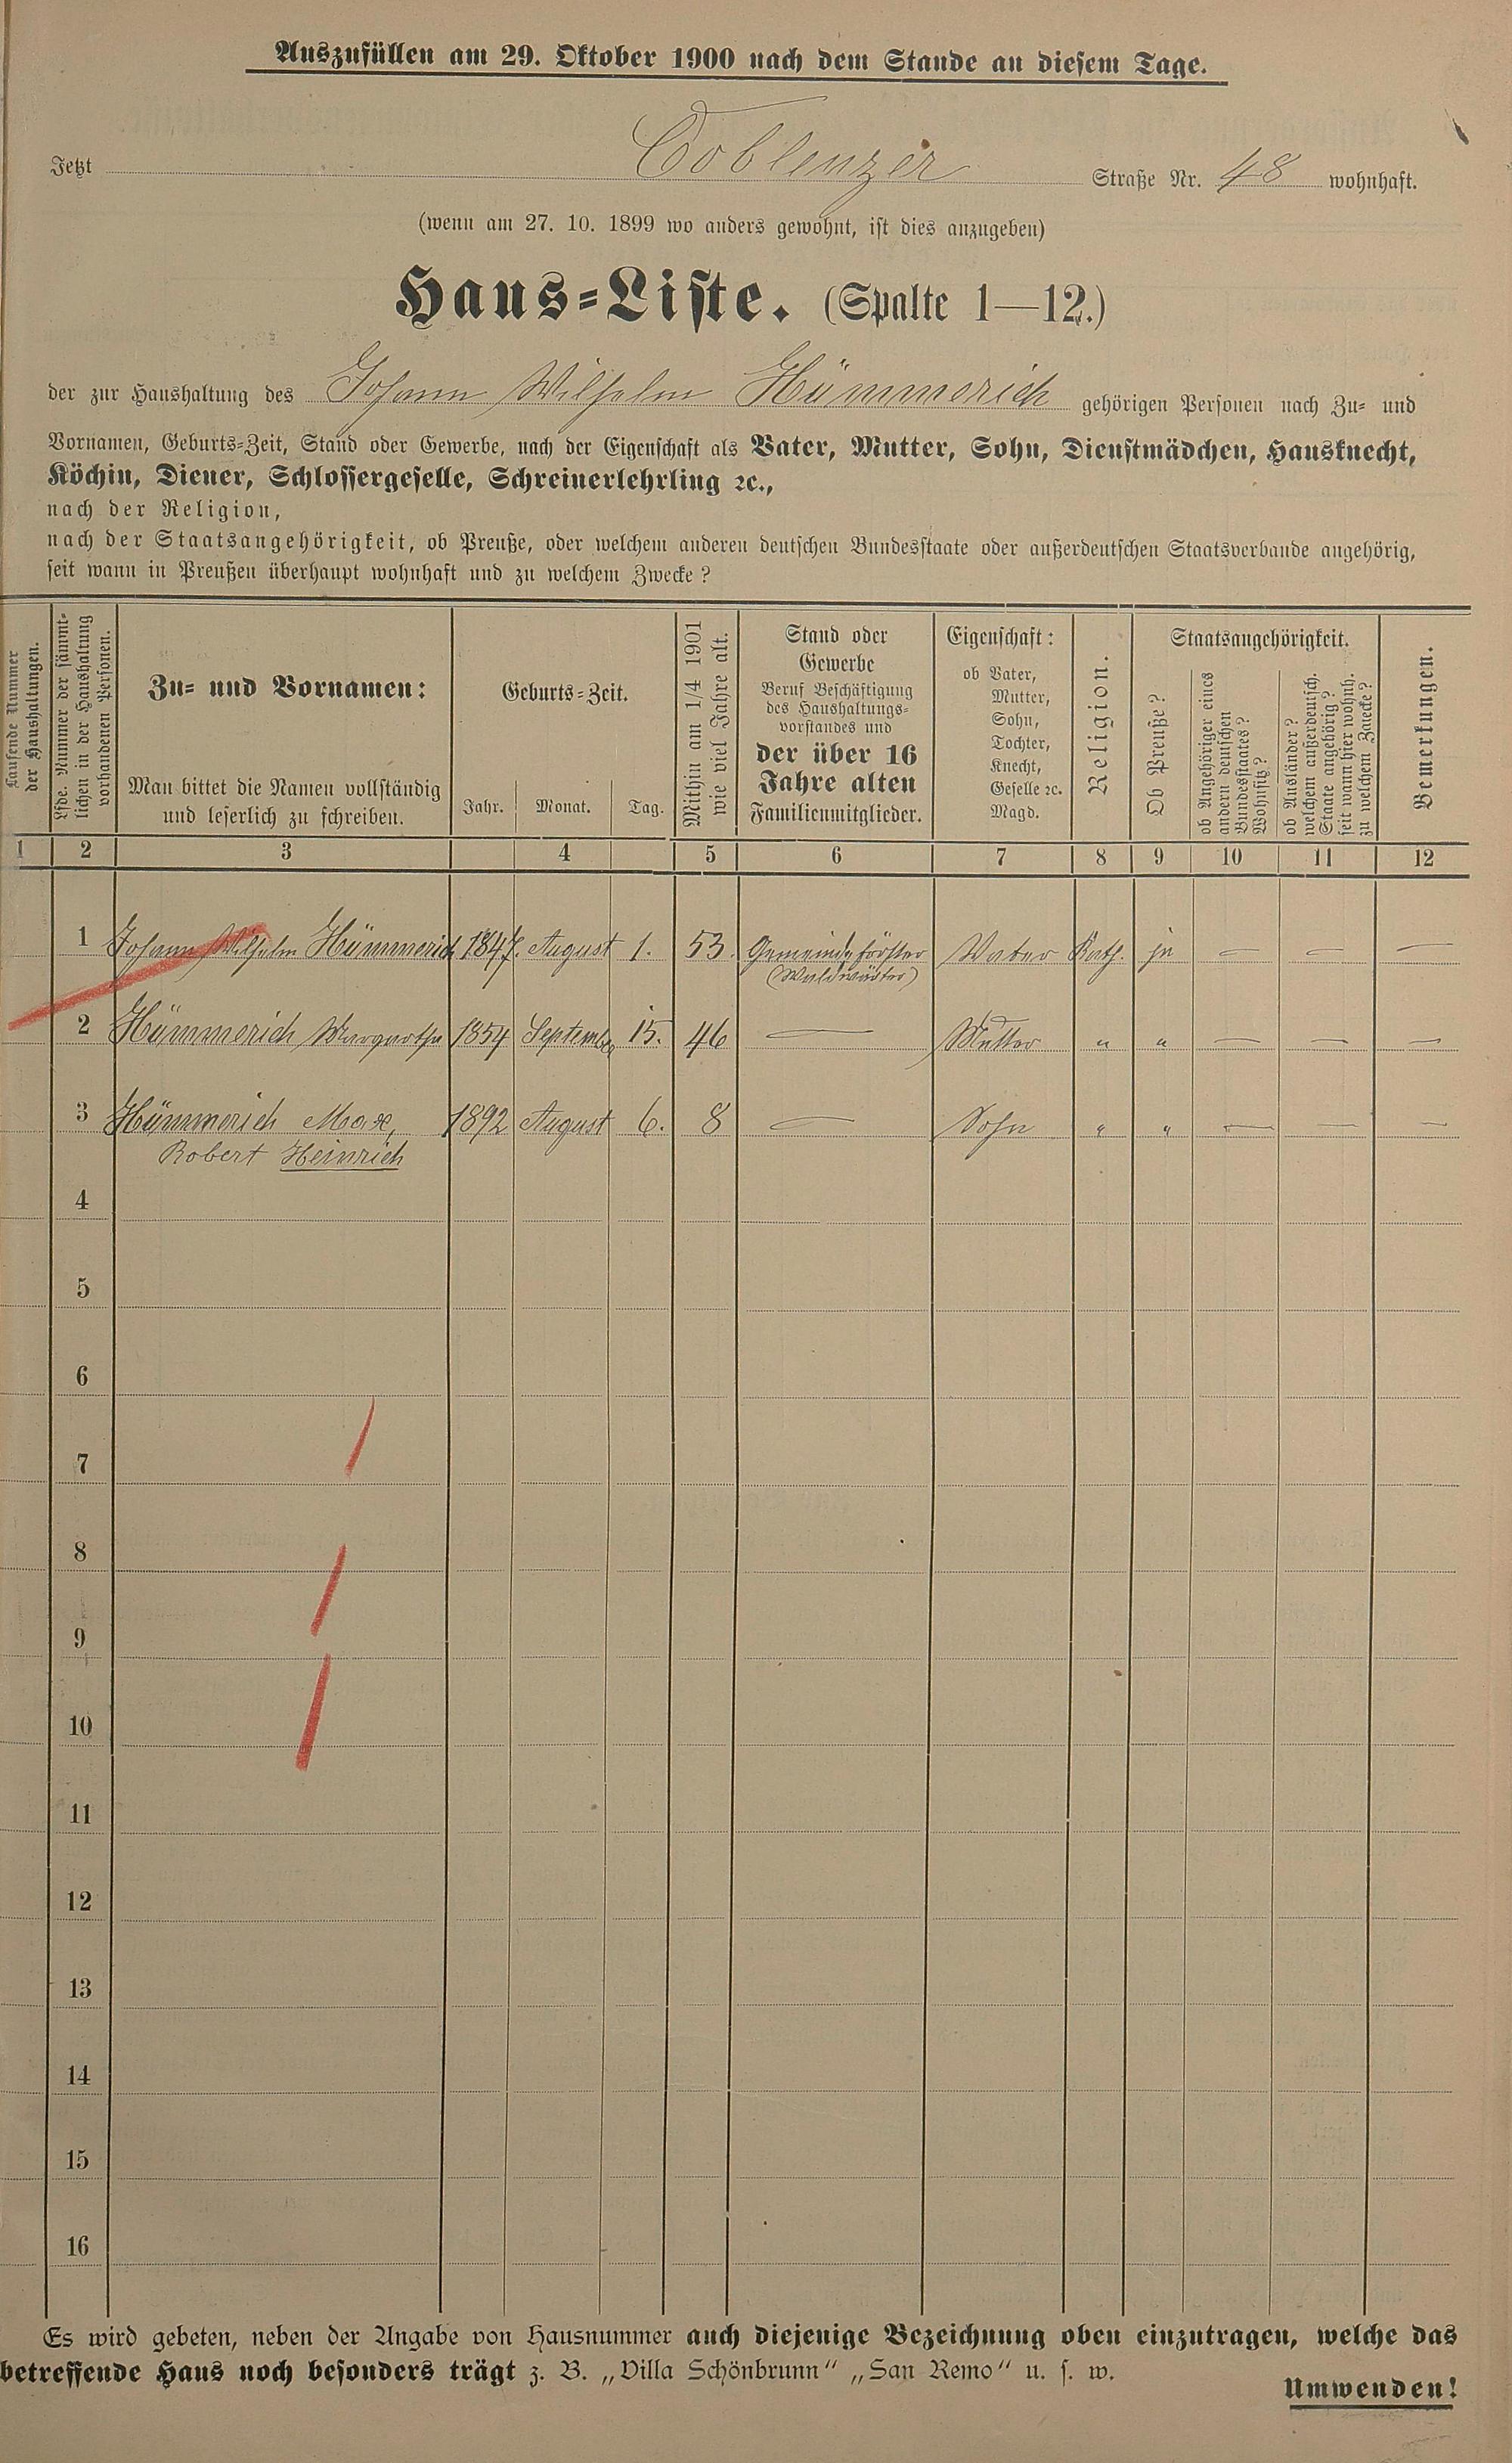 Auszufüllen am 29. Oktober 1900 nach dem Stande an diesem Tage.
Jetzt Coblenzer Straße Nr. 48 wohnhaft.
(wenn am 27. 10. 1899 wo anders gewohnt, ist dies anzugeben)
Haus-Liste. (Spalte 1—12.)
der zur Haushaltung des Johann Wilhelm Hümmerich gehörigen Personen nach Zu- und
Vornamen, Geburts-Zeit, Stand oder Gewerbe, nach der Eigenschaft als Vater, Mutter, Sohn, Dienstmädchen, Hausknecht,
Köchin, Diener, Schlossergeselle, Schreinerlehrling ꝛc.,
nach der Religion,
nach der Staatsangehörigkeit, ob Preuße, oder welchem anderen deutschen Bundesstaate oder außerdeutschen Staatsverbande angehörig,
seit wann in Preußen überhaupt wohnhaft und zu welchem Zwecke?
Laufende Nummer
der Haushaltungen.
Lfde. Nummer der sämmt-
lichen in der Haushaltung
vorhandenen Personen.
Zu- und Vornamen:
Man bittet die Namen vollständig
und leserlich zu schreiben.
Geburts-Zeit.
Jahr. Monat. Tag.
Mithin am 1/4 1901
wie viel Jahre alt.
Stand oder
Gewerbe
Beruf Beschäftigung
des Haushaltungs-
vorstandes und
der über 16
Jahre alten
Familienmitglieder.
Eigenschaft:
ob Vater,
Mutter,
Sohn,
Tochter,
Knecht,
Geselle ꝛc.
Magd.
Religion.
Staatsangehörigkeit.
Ob Preuße?
ob Angehöriger eines
andern deutschen
Bundesstaates?
Wohnsitz?
ob Ausländer?
welchem außerdeutsch.
Staate angehörig?
seit wann hier wohnh.
zu welchem Zwecke?
Bemerkungen.
1 2 3 4 5 6 7 8 9 10 11 12
1 Johann Wilhelm Hümmerich 1847. August 1. 53. Gemeindeförster Vater Kath. ja — — —
(Waldwärter)
2 Hümmerich Margaretha 1854 September 15. 46 — Mutter " " — — —
3 Hümmerich Max, 1892 August 6. 8 — Sohn " " — — —
Robert Heinrich
4
5
6
7
8
9
10
11
12
13
14
15
16
Es wird gebeten, neben der Angabe von Hausnummer auch diejenige Bezeichnung oben einzutragen, welche das
betreffende Haus noch besonders trägt z. B. „Villa Schönbrunn“ „San Remo“ u. s. w.
Umwenden!